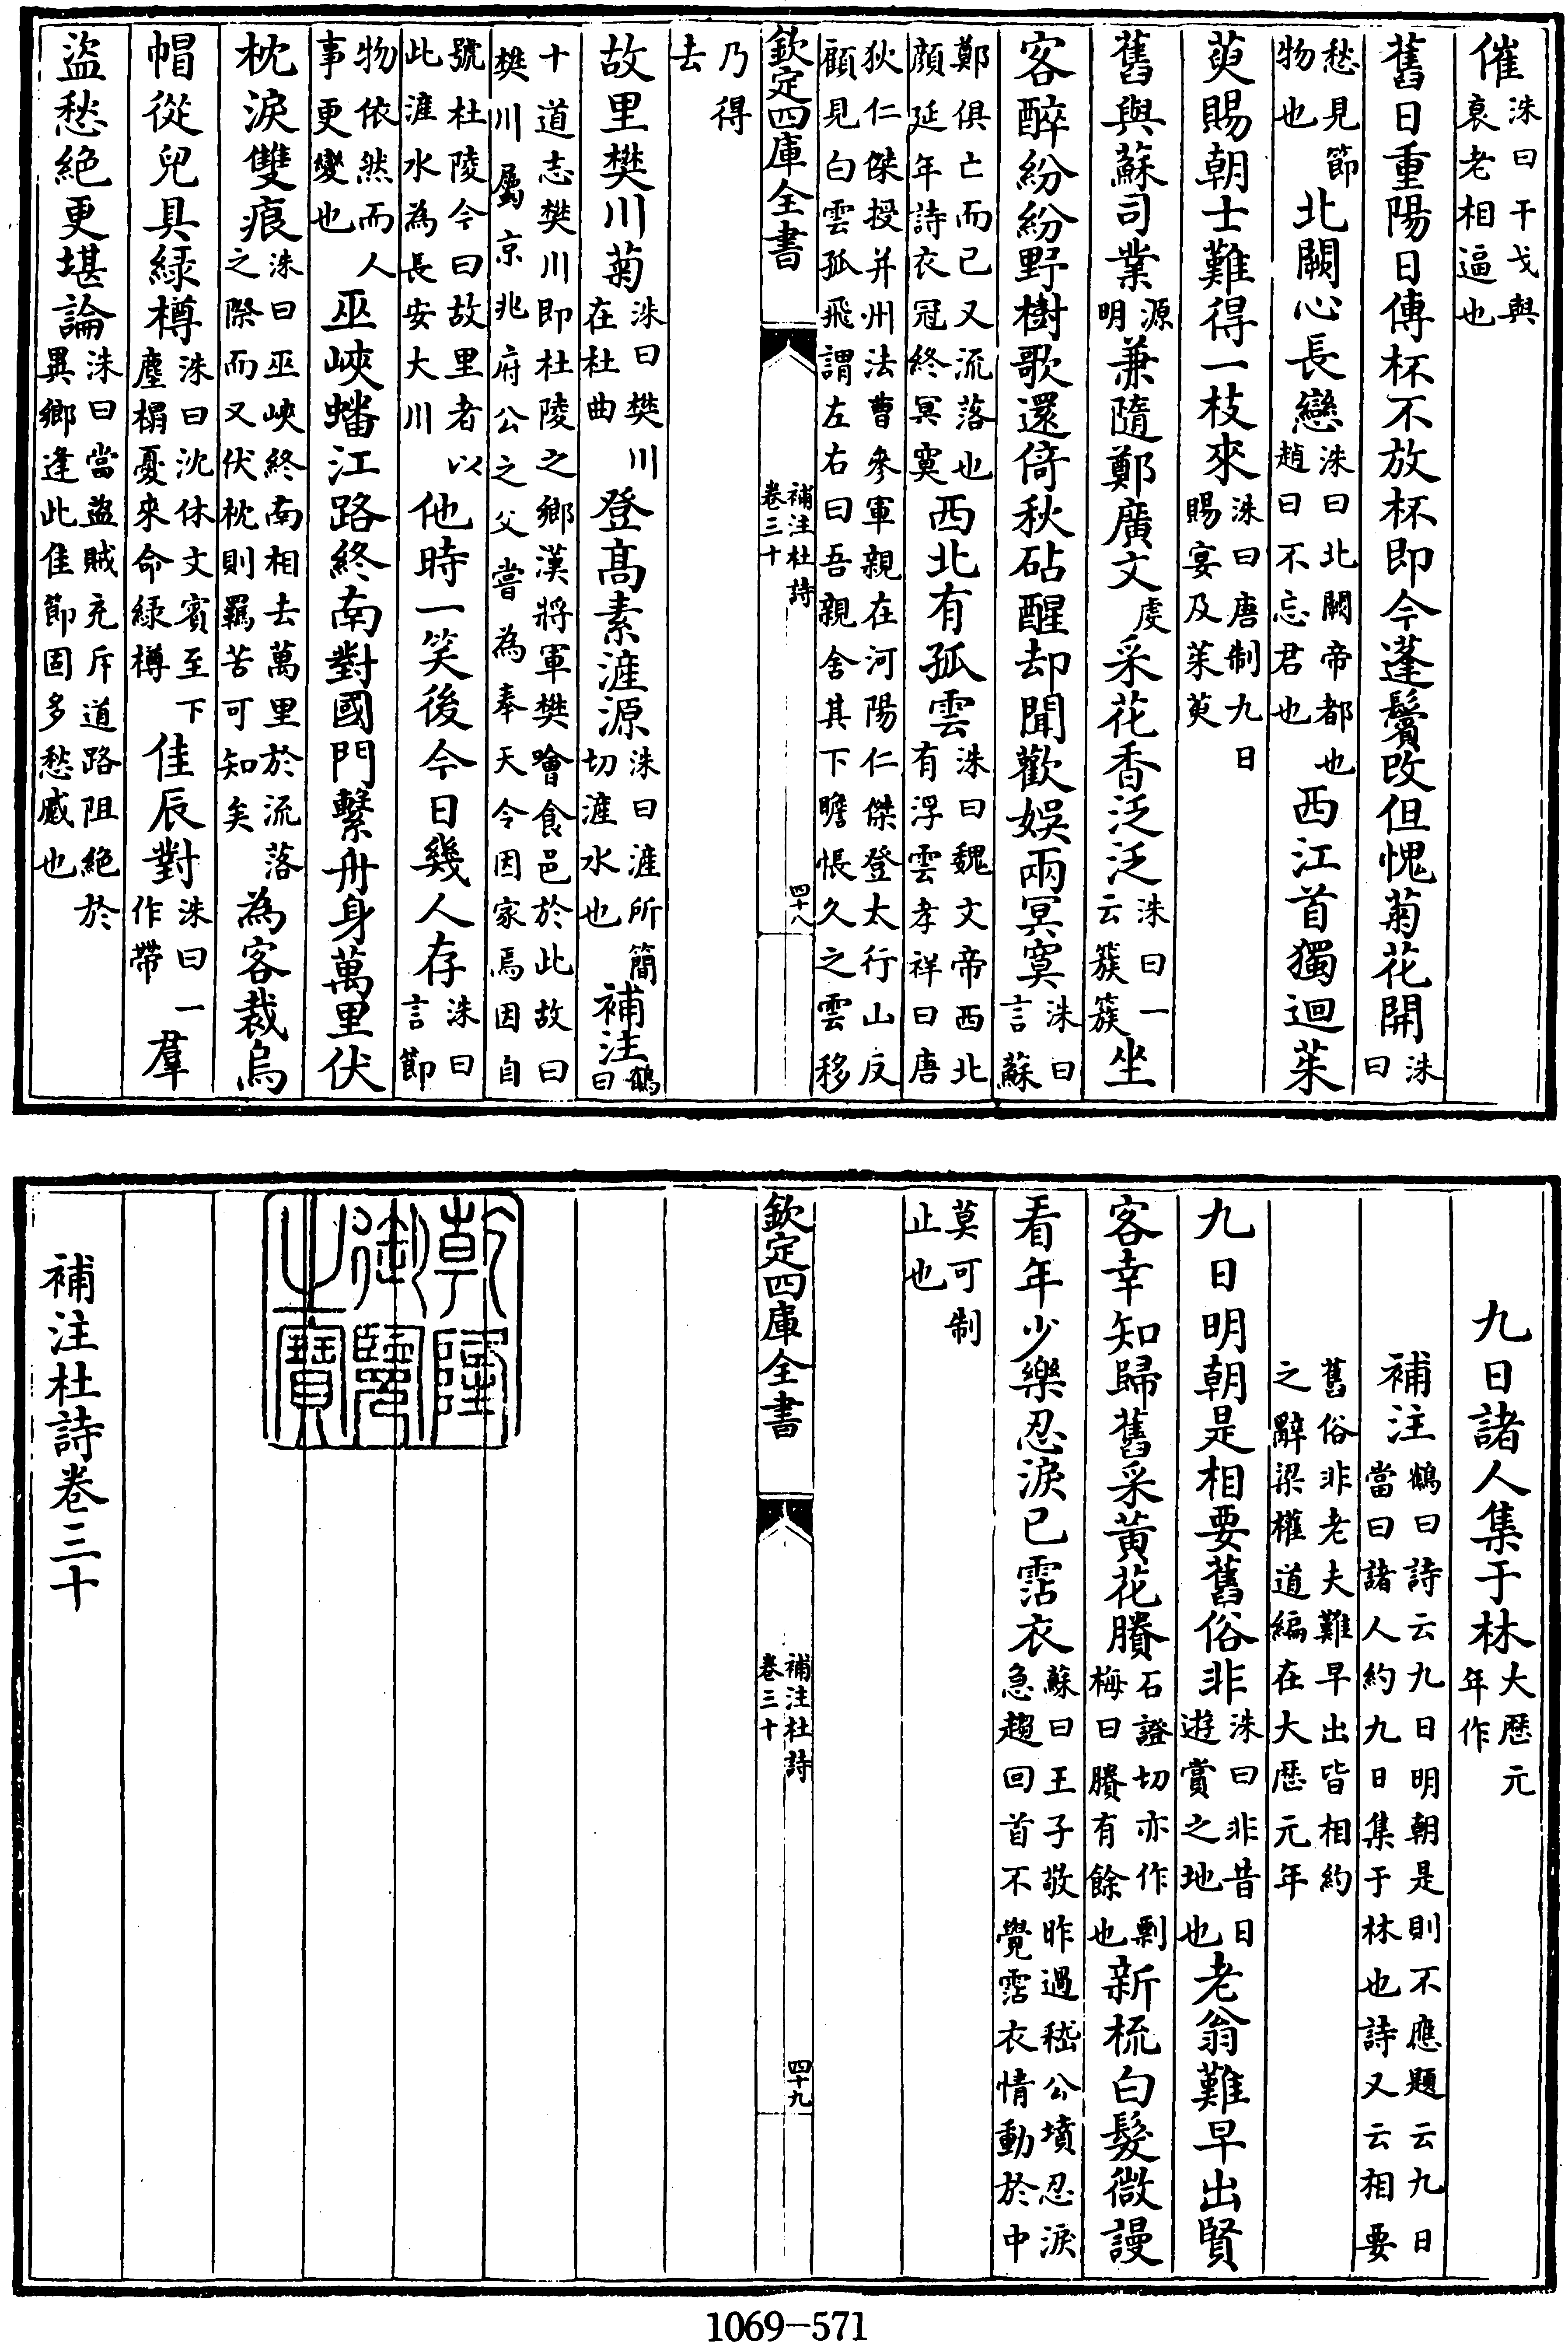 催洙曰干戈與衰老相逼也
舊日重陽日傳杯不放杯即今蓬鬢改但愧菊花開洙曰
愁見節物也北闕心長戀洙曰北闕帝都也趙曰不忘君也西江首獨迴茱
萸賜朝士難得一枝來洙曰唐制九日賜宴及茱萸
舊與蘇司業源明兼隨鄭廣文虔采花香泛泛洙曰一云簇簇坐
客醉紛紛野樹歌還倚秋砧醒却聞歡娛兩冥寞洙曰言蘇
鄭俱亡而已又流落也顔延年詩衣冠終冥寞西北有孤雲洙曰魏文帝西北有浮雲孝祥曰唐
狄仁傑授并州法曹參軍親在河陽仁傑登太行山反顧見白雲孤飛謂左右曰吾親舍其下瞻悵久之雲移
欽定四庫全書
補注杜詩
卷三十
四十八
乃得去
故里樊川菊洙曰樊川在杜曲登髙素滻源洙曰滻所簡切滻水也補注鶴曰
十道志樊川即杜陵之鄉漢將軍樊噲食邑於此故曰樊川屬京兆府公之父嘗為奉天令因家焉因自
號杜陵今曰故里者以此滻水為長安大川他時一笑後今日幾人存洙曰言節
物依然而人事更變也巫峽蟠江路終南對國門繫舟身萬里伏
枕淚雙痕洙曰巫峽終南相去萬里於流落之際而又伏枕則羈苦可知矣為客裁烏
帽從兒具緑樽洙曰沈休文賓至下塵榻憂來命緑樽佳辰對洙曰一作帶羣
盜愁絶更堪論洙曰當盜賊充斥道路阻絶於異鄉逢此佳節固多愁感也
九日諸人集于林大歴元年作
補注鶴曰詩云九日明朝是則不應題云九日當曰諸人約九日集于林也詩又云相要
舊俗非老夫難早出皆相約之辭梁權道編在大歴元年
九日明朝是相要舊俗非洙曰非昔日遊賞之地也老翁難早出賢
客幸知歸舊采黄花賸石證切亦作剰梅曰賸有餘也新梳白髮微謾
看年少樂忍淚已霑衣蘇曰王子敬昨過嵇公墳忍淚急趨回首不覺霑衣情動於中
莫可制止也
欽定四庫全書
補注杜詩
卷三十
四十九
乾隆御覽之寶
補注杜詩卷三十
1069-571